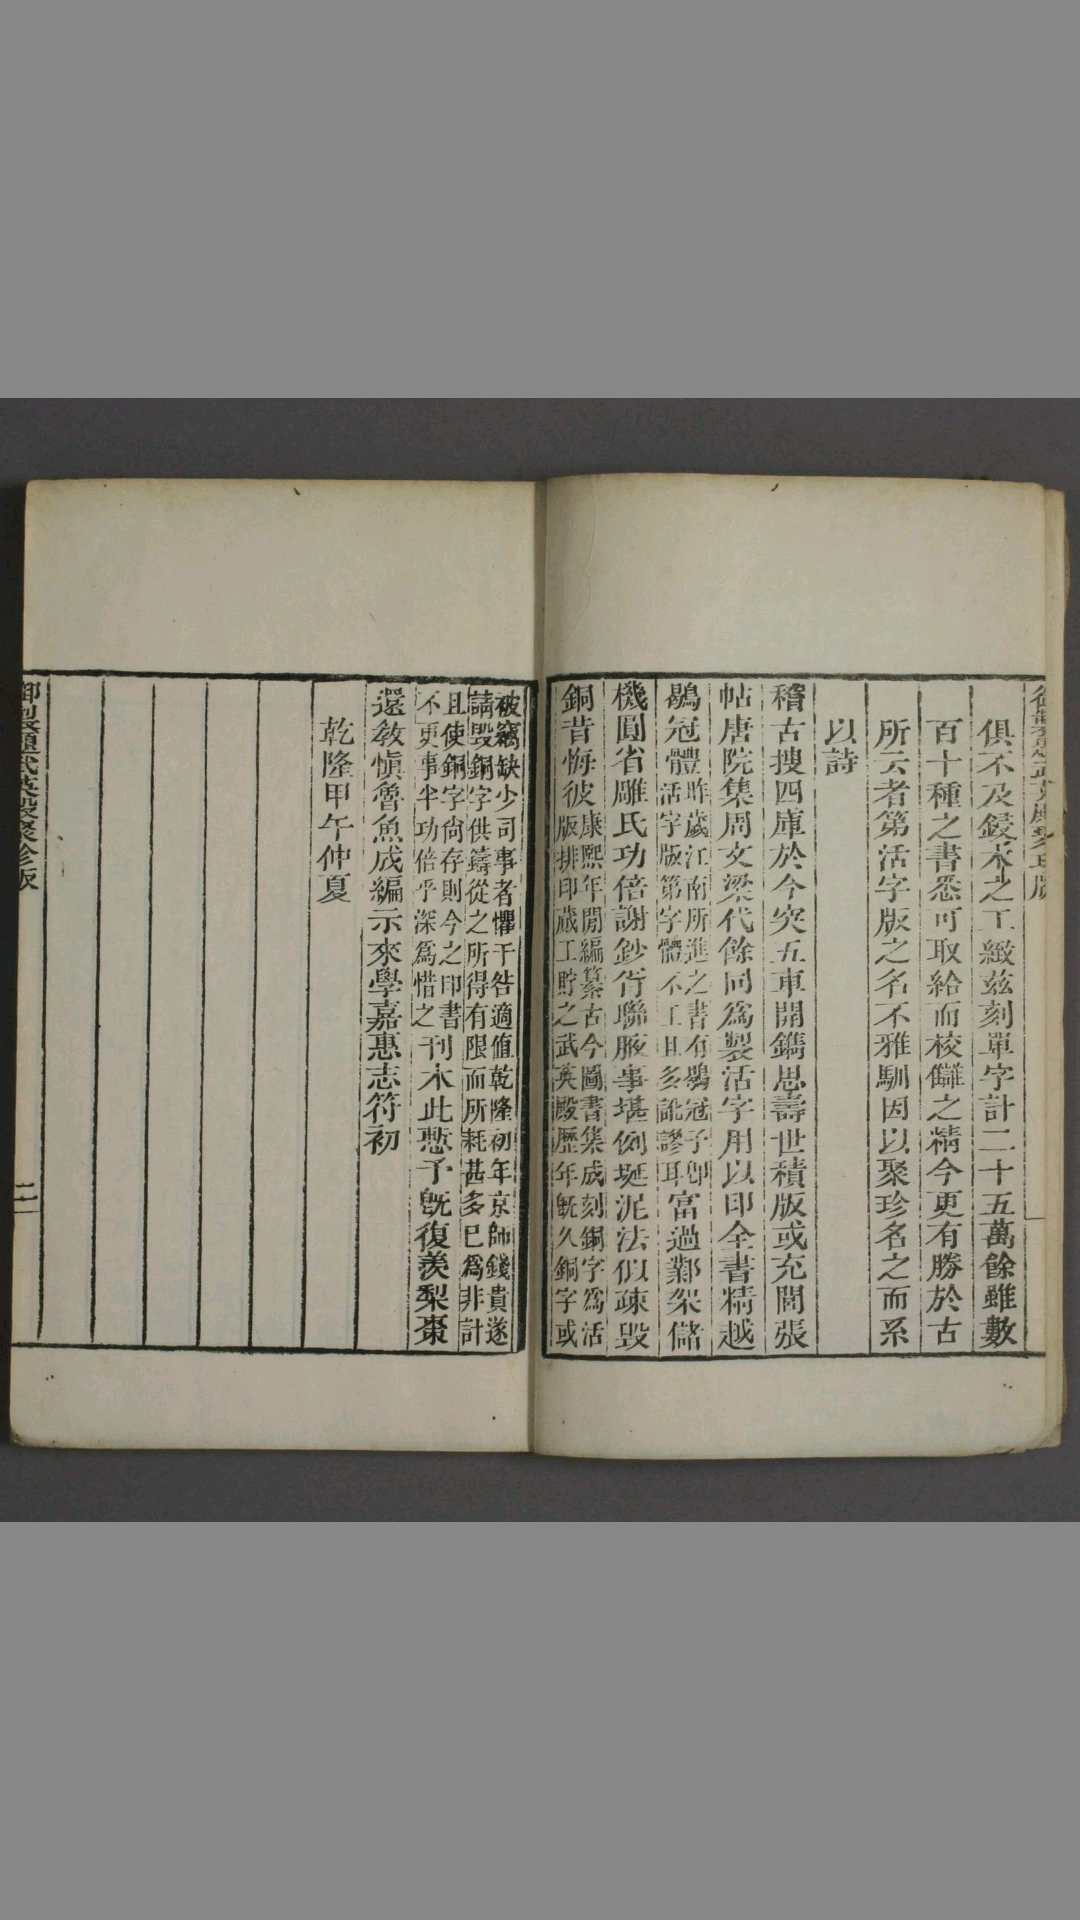 俱不及鋟木之工緻茲刻單字計二十五萬餘雖數
百十種之書悉可取給而校讎之精今更有勝於古
所云者第活字版之名不雅馴因以聚珍名之而系
以詩
稽古搜四庫於今突五車開鐫思壽世積版或充閭張
帖唐院集周文梁代餘同為製活字用以印全書精越
鶡冠體昨歲江南所進之書有鶡冠子即
活字版第字體不工且多訛謬耳富過鄴架儲
機圓省雕氏功倍謝鈔胥聯腋事堪例埏泥法似疎毀
銅昔悔彼康熙年閒編纂古今圖書集成刻銅字為活
版排印蕆工貯之武英殿歷年既久銅字或
被竊缺少司事者懼干咎適值乾隆初年京師錢貴遂
請毀銅字供鑄從之所得有限而所耗甚多已為非計
且使銅字尚存則今之印書
不更事半功倍乎深為惜之刊木此慙予既復羨梨棗
還教慎魯魚成編示來學嘉惠志符初
乾隆甲午仲夏
御製題武英殿聚珍版
二